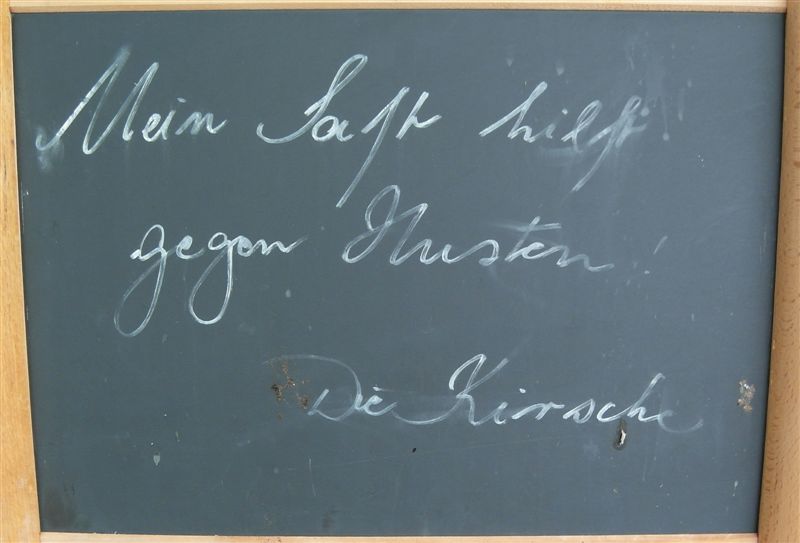 Mein Saft hilft
gegen Husten!
Die Kirsche